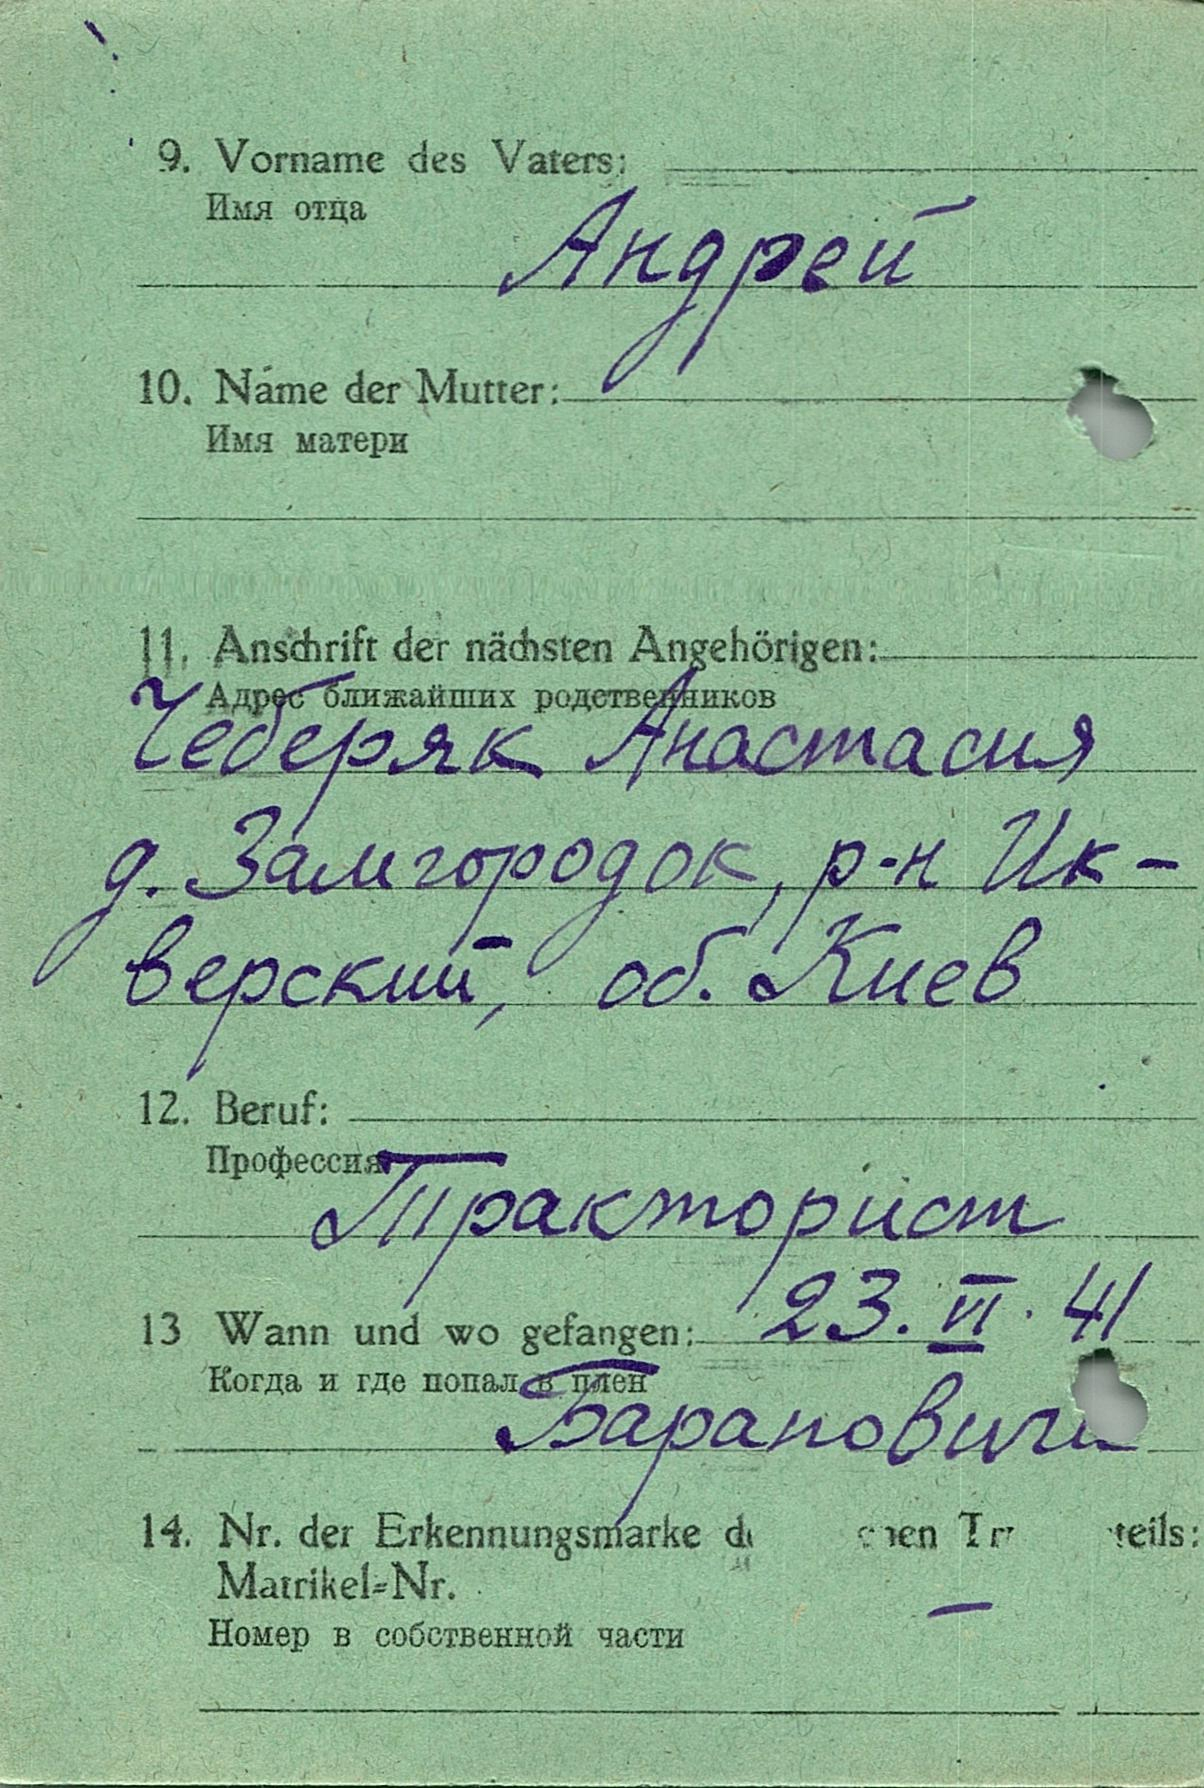 9. Vorname des Vaters:
Имя отца
Андрей
10. Name der Mutter:
Имя матери
11. Anschrift der nächsten Angehörigen:
Адрес ближайших родственников
Чеберяк Анастасия
д. Замгородок, р-н Ик-
верский, об. Киев
12. Beruf:
Профессия
Тракторист
13 Wann und wo gefangen: 23. VI. 41
Когда и где попал в плен
Барановичи
14. Nr. der Erkennungsmarke
Matrikel=Nr. –
Номер в собственной части